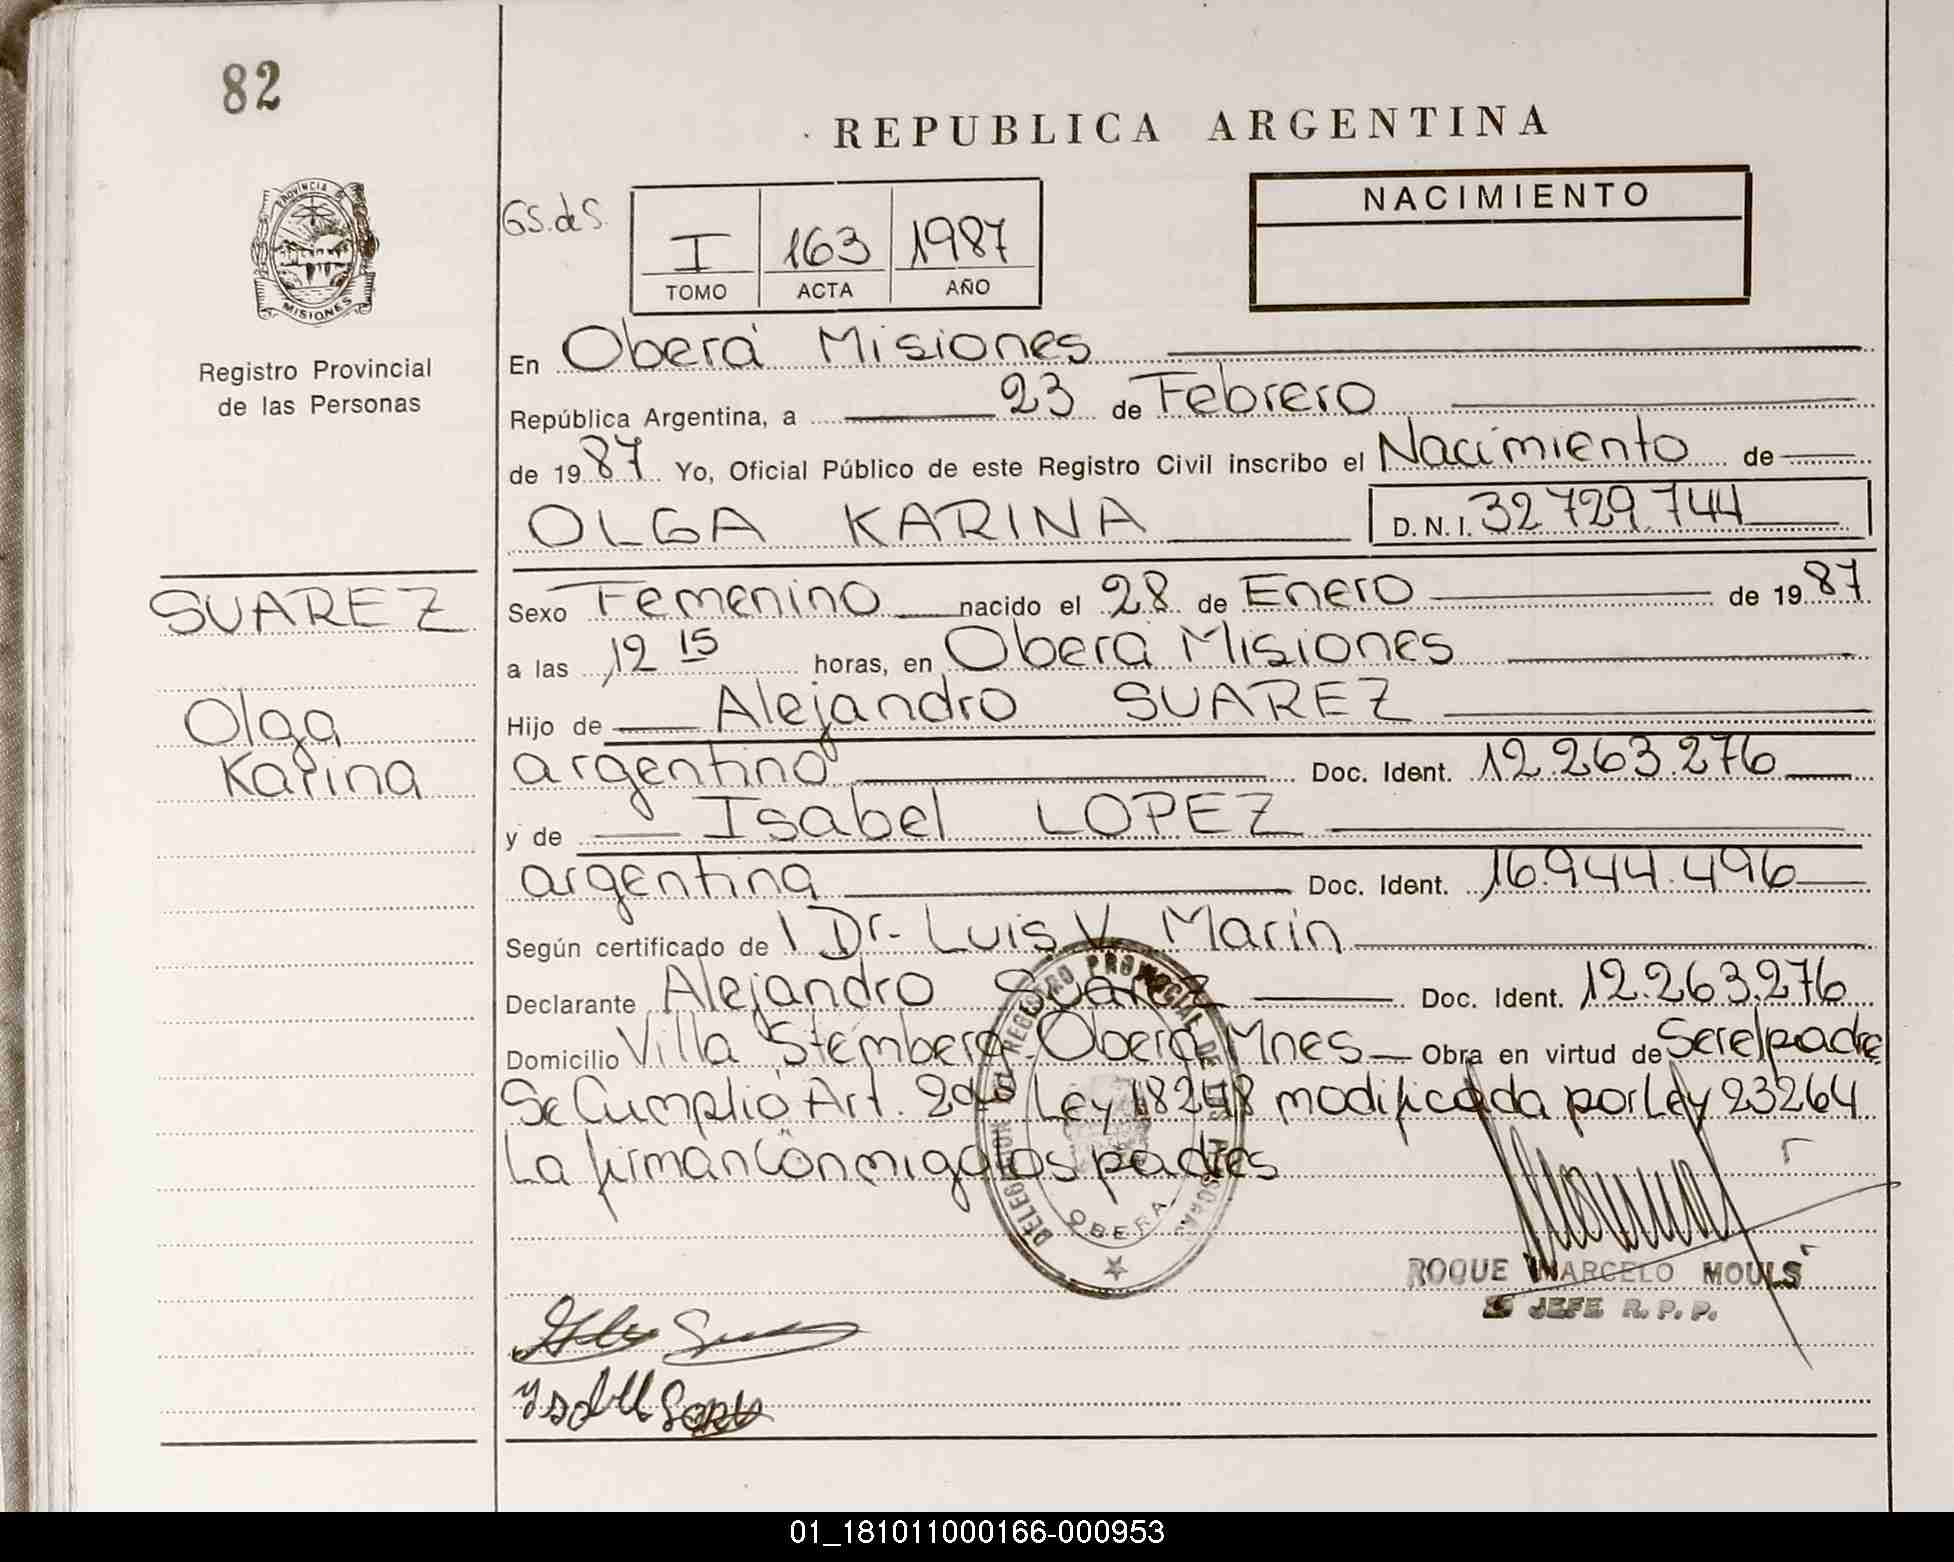 82
REPUBLICA ARGENTINA
PROVINCIA DE
MISIONES
Registro Provincial
de las Personas
GS.deS.
I 163 1987
TOMO ACTA AÑO
NACIMIENTO
En Oberá Misiones
República Argentina, a 23 de Febrero
de 1987 Yo, Oficial Público de este Registro Civil inscribo el Nacimiento de
OLGA KARINA D.N.I. 32 729 744
SUAREZ
Olga
Karina
Sexo Femenino nacido el 28 de Enero de 1987
a las 12 15 horas, en Oberá Misiones
Hijo de Alejandro SUAREZ
argentino Doc. Ident. 12.263.276
y de Isabel LOPEZ
argentina Doc. Ident. 16.944.496
Según certificado de Dr. Luis V. Marin
Declarante Alejandro Suarez Doc. Ident. 12.263.276
Domicilio Villa Stemberg Oberá Mnes Obra en virtud de Ser el padre
Se Cumplió Art. 2do Ley 18248 modificada por Ley 23264
La firman Conmigo los padres
REGISTRO PROVINCIAL DE LAS PERSONAS
OBERA
ROQUE MARCELO MOULS
JEFE R.P.P.
01_181011000166-000953